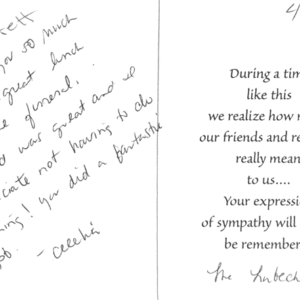 ett
you so much
great lunch
e funeral.
d was great and we
ciate not having to do
ing! You did a fantastic
ob.
- Cecelia
4
During a tim
like this
we realize how m
our friends and re
really mean
to us....
Your expressio
of sympathy will
be remember
The